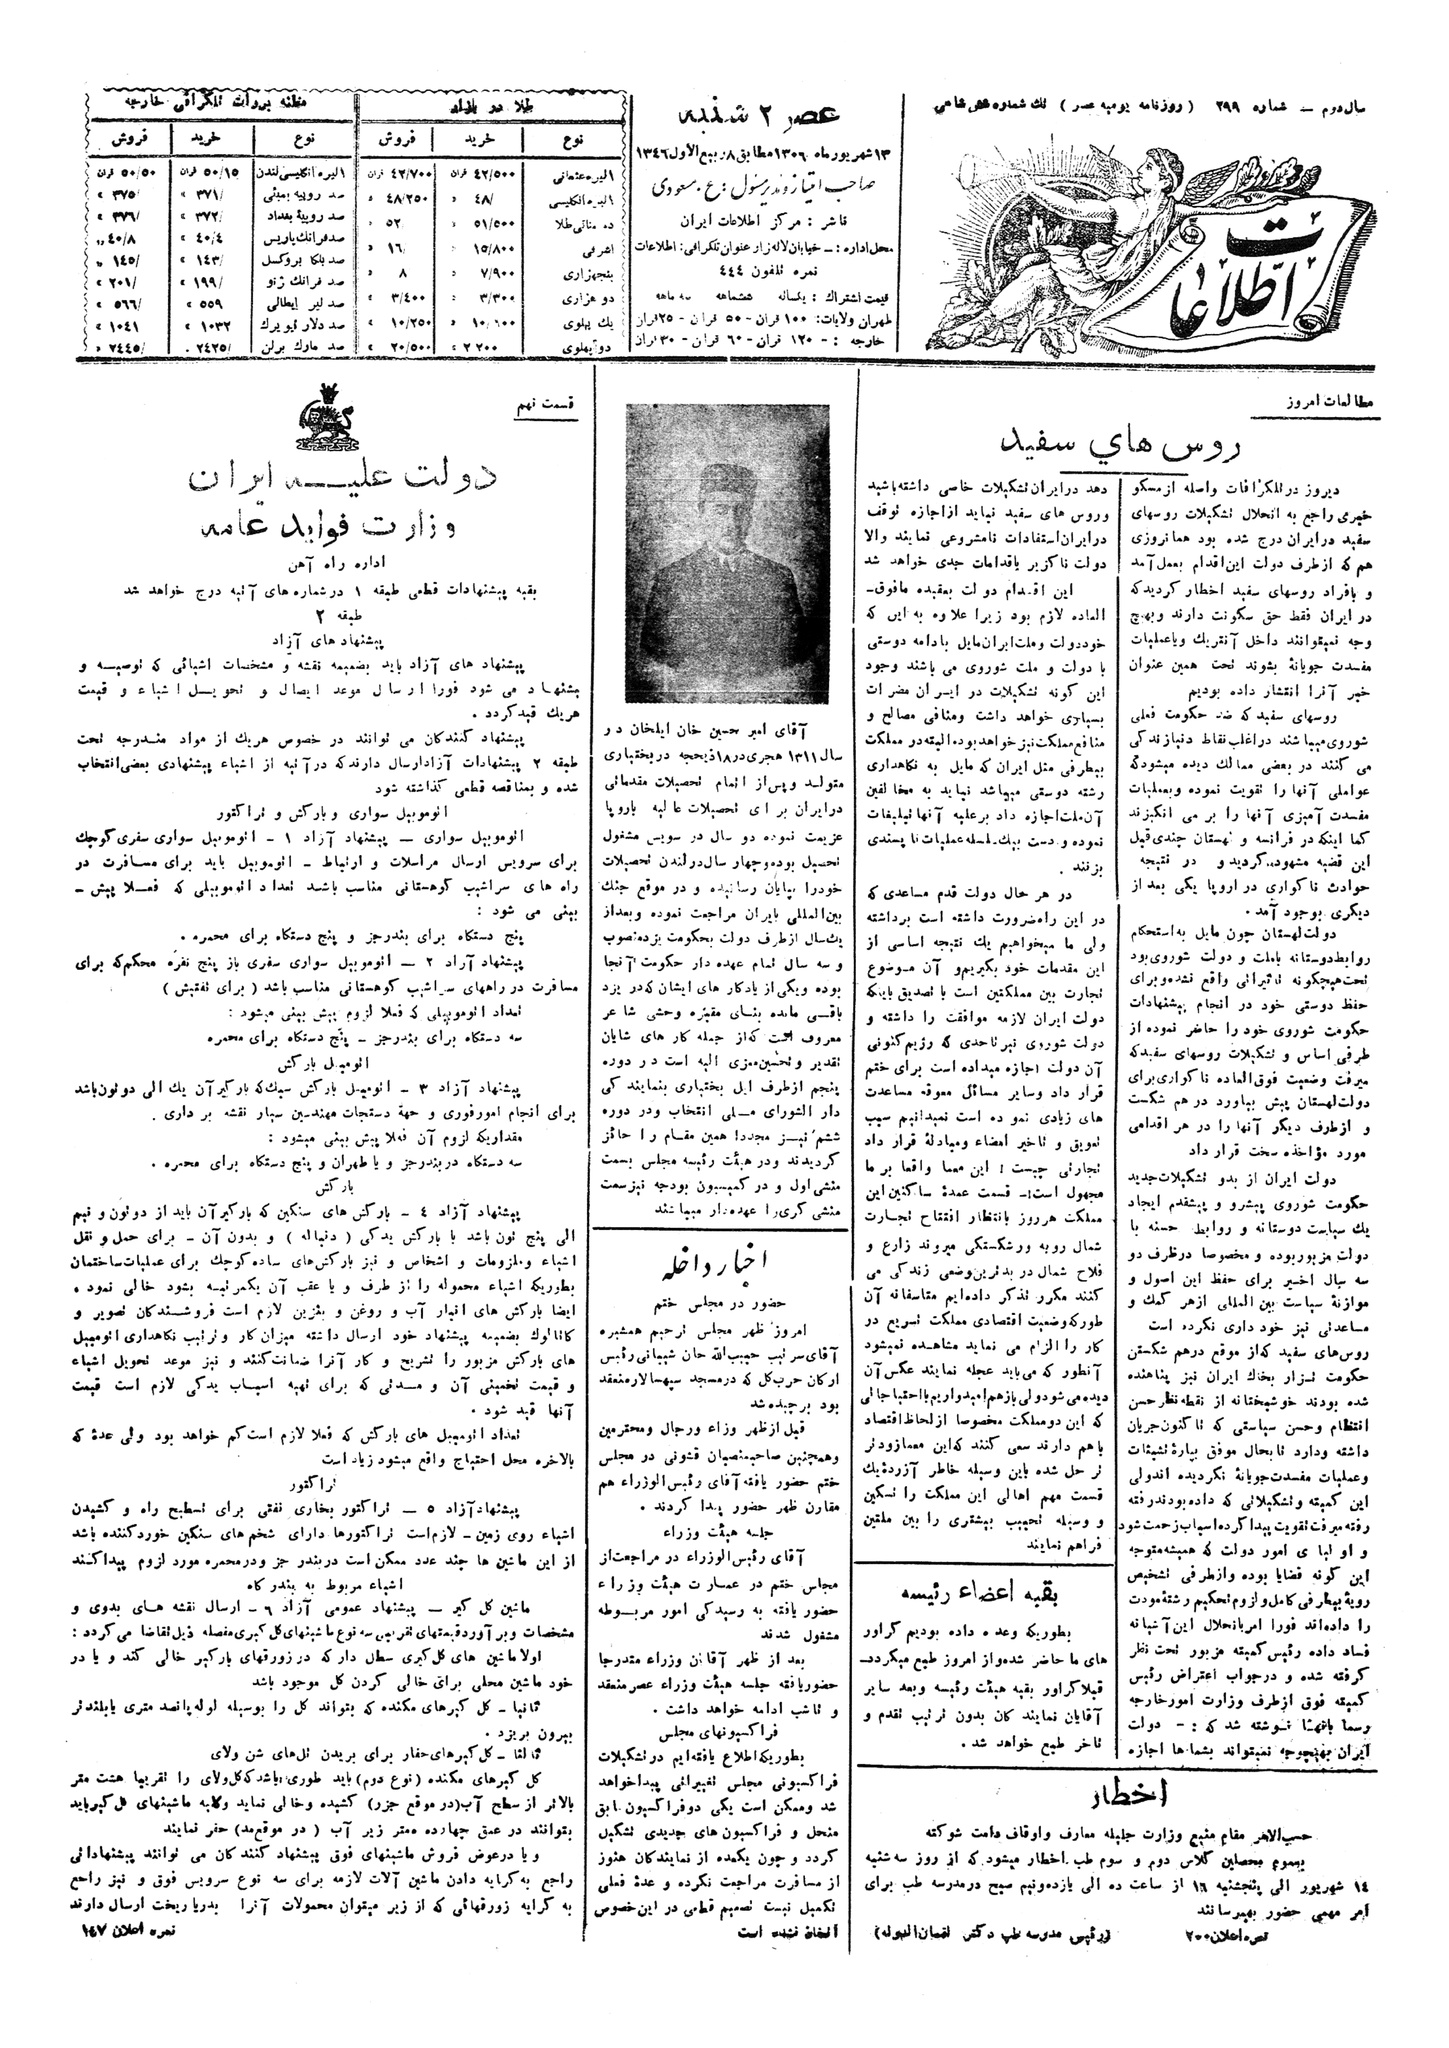 سال دوم – شماره ۲۹۹ (روزنامه یومیه عصر) تك شماره شش شاهی
اطلاعات
عصر ۲ شنبه
۱۳ شهریور ماه ۱۳۰۶ مطابق ۸ ربیع الأول ۱۳۴۶
صاحب امتیاز و مدیر مسئول : ع . مسعودی
ناشر : مرکز اطلاعات ایران
محل اداره : – خیابان لاله زار عنوان تلگرافی : اطلاعات
نمره تلفون ۴۴۴
قیمت اشتراك : یکساله ششماهه سه ماهه
طهران و ولایات : ۱۰۰ قران - ۵۰ قران - ۲۵ قران
خارجه : - ۱۲۰ قران - ۶۰ قران - ۳۰ قران
طلا در بازار
نوع خرید فروش
۱ لیره عثمانی ۴۲/۵۰۰ قران ۴۲/۷۰۰ قران
۱ لیره انگلیسی ۴۸/ ۴۸/۲۵۰
ده مناتی طلا ۵۱/۵۰۰ ۵۲
اشرفی ۱۵/۸۰۰ ۱۶
پنجهزاری ۷/۹۰۰ ۸
دو هزاری ۳/۳۰۰ ۳/۴۰۰
یك پهلوی ۱۰/۲۵۰
دو پهلوی ۲۰/۵۰۰
مظنه بروات تلگرافی خارجه
نوع خرید فروش
۱ لیره انگلیسی لندن ۵۰/۱۵ قران ۵۰/۵۰ قران
صد روپیه بمبئی ۳۷۱/ ۳۷۵/
صد روپیۀ بغداد ۳۷۲/ ۳۷۶/
صد فرانك پاریس ۴۰/۴ ۴۰/۸
صد بلگا بروکسل ۱۴۳/ ۱۴۵/
صد فرانك ژنو ۱۹۹/ ۲۰۱/
صد لیر ایطالی ۵۵۹ ۵۶۶/
صد دلار نیویرك ۱۰۳۲ ۱۰۴۱
صد مارك برلن ۲۴۲۵/ ۲۴۴۵/
مطالعات امروز
روس های سفید
دیروز در تلگرافات واصله از مسکو
خبری راجع به انحلال تشکیلات روسهای
سفید در ایران درج شده بود همانروزی
هم که از طرف دولت این اقدام بعمل آمد
و بافراد روسهای سفید اخطار گردید که
در ایران فقط حق سکونت دارند و بهیچ
وجه نمیتوانند داخل آنتریك و یا عملیات
مفسدت جویانۀ بشوند تحت همین عنوان
خبر آنرا انتشار داده بودیم
روسهای سفید که ضد حکومت فعلی
شوروی میباشند در اغلب نقاط دنیا زندگی
می کنند در بعضی ممالك دیده میشود که
عواملی آنها را تقویت نموده و بعملیات
مفسدت آمیزی آنها را بر می انگیزند
کما اینکه در فرانسه و لهستان چندی قبل
این قضیه مشهود گردید و در نتیجه
حوادث ناگواری در اروپا یکی بعد از
دیگری بوجود آمد .
دولت لهستان چون مایل به استحکام
روابط دوستانه با ملت و دولت شوروی بود
تحت هیچگونه تاثیراتی واقع نشده و برای
حفظ دوستی خود در انجام پیشنهادات
حکومت شوروی خود را حاضر نموده از
طرفی اساس و تشکیلات روسهای سفید که
میرفت وضعیت فوق العاده ناگواری برای
دولت لهستان پیش بیاورد در هم شکست
و از طرف دیگر آنها را در هر اقدامی
مورد مؤاخذه سخت قرار داد
دولت ایران از بدو تشکیلات جدید
حکومت شوروی پیشرو و پیشقدم ایجاد
یك سیاست دوستانه و روابط حسنه با
دولت مزبور بوده و مخصوصا در ظرف دو
سه سال اخیر برای حفظ این اصول و
موازنۀ سیاست بین المللی از هر کمك و
مساعدتی نیز خود داری نکرده است
روس های سفید که از موقع درهم شکستن
حکومت تزار بخاك ایران نیز پناهنده
شده بودند خوشبختانه از نقطه نظر حسن
انتظام و حسن سیاستی که تاکنون جریان
داشته و دارد تا بحال موفق بپارۀ تشبثات
و عملیات مفسدت جویانۀ نگردیده اند ولی
این کمیته و تشکیلاتی که داده بودند رفته
رفته میرفت تقویت پیدا کرده اسباب زحمت شود
و اولیا ی امور دولت که همیشه متوجه
این گونه قضایا بوده و از طرفی تشخیص
رویۀ بیطرفی کامل و لزوم تحکیم رشتۀ مودت
را داده اند فورا امر بانحلال این آشیانه
فساد داده رئیس کمیته مزبور تحت نظر
گرفته شده و در جواب اعتراض رئیس
کمیته فوق از طرف وزارت امور خارجه
رسما بآنها نوشته شد که : - دولت
ایران بهیچوجه نمیتواند بشما ها اجازه
دهد در ایران تشکیلات خاصی داشته باشید
و روس های سفید نباید از اجازه توقف
در ایران استفادات نامشروعی نمایند والا
دولت ناگزیر باقدامات جدی خواهد شد
این اقدام دولت بعقیده مافوق-
العاده لازم بود زیرا علاوه به این که
خود دولت و ملت ایران مایل بادامه دوستی
با دولت و ملت شوروی می باشند وجود
این گونه تشکیلات در ایران مضرات
بسیاری خواهد داشت و منافی مصالح و
منافع مملکت نیز خواهد بود البته در مملکت
بیطرفی مثل ایران که مایل به نگاهداری
رشته دوستی میباشد نباید به مخالفین
آن ملت اجازه داد بر علیه آنها تبلیغات
نموده و دست بیك سلسله عملیات ناپسندی
بزنند .
در هر حال دولت قدم مساعدی که
در این راه ضرورت داشته است برداشته
ولی ما میخواهیم یك نتیجه اساسی از
این مقدمات خود بگیریم و آن موضوع
تجارت بین مملکتین است با تصدیق باینکه
دولت ایران لازمه موافقت را داشته و
دولت شوروی نیز تا حدی که رژیم کنونی
آن دولت اجازه میداده است برای ختم
قرار داد و سایر مسائل معوقه مساعدت
های زیادی نموده است نمیدانیم سبب
تعویق و تاخیر امضاء و مبادلۀ قرار داد
تجارتی چیست ؛ این معما واقعا بر ما
مجهول است :- قسمت عمدۀ ساکنین این
مملکت هر روز بانتظار افتتاح تجارت
شمال رو به ورشکستگی میروند زارع و
فلاح شمال در بدترین وضعی زندگی می
کنند مکرر تذکر داده ایم متاسفانه آن
طور که وضعیت اقتصادی مملکت تسریع در
کار را الزام می نماید مشاهده نمیشود
آنطور که می باید عجله نمایند عکس آن
دیده می شود ولی باز هم امیدواریم با احتیاجاتی
که این دو مملکت مخصوصا از لحاظ اقتصاد
با هم دارند سعی کنند که این معما زودتر
تر حل شده باین وسیله خاطر آزردۀ یك
قسمت مهم اهالی این مملکت را تسکین
و وسیله تحبیب بیشتری را بین ملتین
فراهم نمایند
بقیه اعضاء رئیسه
بطوریکه وعده داده بودیم گراور
های ما حاضر شده و از امروز طبع میگردد
قبلا گراور بقیه هیئت رئیسه و بعد سایر
آقایان نمایند گان بدون ترتیب تقدم و
تاخر طبع خواهد شد .
اخطار
حسب الامر مقام منیع وزارت جلیله معارف و اوقاف دامت شوکته
بعموم محصلین کلاس دوم و سوم طب اخطار میشود که از روز سه شنبه
۱۴ شهریور الی پنجشنبه ۱۶ از ساعت ده الی یازده و نیم صبح در مدرسه طب برای
امر مهمی حضور بهمرسانند
نمره اعلان ۲۰۰ (رئیس مدرسه طب دکتر لقمان الدوله)
آقای امیر حسین خان ایلخان در
سال ۱۳۱۱ هجری در ۱۸ ذیحجه در بختیاری
متولد و پس از اتمام تحصیلات مقدماتی
در ایران برای تحصیلات عالیه باروپا
عزیمت نموده دو سال در سویس مشغول
تحصیل بوده و چهار سال در لندن تحصیلات
خود را بپایان رسانیده و در موقع جنك
بین المللی بایران مراجعت نموده و بعد از
یك سال از طرف دولت بحکومت یزد منصوب
و سه سال تمام عهده دار حکومت آنجا
بوده و یکی از یادگار های ایشان که در یزد
باقی مانده بنای مقبره وحشی شاعر
معروف است که از جمله کار های شایان
تقدیر و تحسین معزی الیه است در دوره
پنجم از طرف ایل بختیاری بنمایندگی
دار الشورای ملی انتخاب و در دوره
ششم نیز مجددا همین مقام را حائز
گردیدند و در هیئت رئیسه مجلس بسمت
منشی اول و در کمیسیون بودجه نیز سمت
منشی گری را عهده دار میباشند
اخبار داخله
حضور در مجلس ختم
امروز ظهر مجلس ترحیم همشیره
آقای سرتیپ حبیب الله خان شیبانی رئیس
ارکان حرب کل که در مسجد سپهسالار منعقد
بود برچیده شد
قبل از ظهر وزراء و رجال و محترمین
و همچنین صاحبمنصبان قشونی در مجلس
ختم حضور یافته آقای رئیس الوزراء هم
مقارن ظهر حضور پیدا کردند .
جلسه هیئت وزراء
آقای رئیس الوزراء در مراجعت از
مجلس ختم در عمارت هیئت وزراء
حضور یافته به رسیدگی امور مربوطه
مشغول شدند
بعد از ظهر آقایان وزراء متدرجا
حضور یافته جلسه هیئت وزراء عصر منعقد
و تا شب ادامه خواهد داشت .
فراکسیونهای مجلس
بطوریکه اطلاع یافته ایم در تشکیلات
فراکسیونی مجلس تغییراتی پیدا خواهد
شد و ممکن است یکی دو فراکسیون سابق
منحل و فراکسیون های جدیدی تشکیل
گردد و چون یکعده از نمایندگان هنوز
از مسافرت مراجعت نکرده و عدۀ فعلی
تکمیل نیست تصمیم قطعی در این خصوص
اتخاذ نشده است
قسمت نهم
دولت علیه ایران
وزارت فواید عامه
اداره راه آهن
بقیه پیشنهادات قطعی طبقه ۱ در شماره های آتیه درج خواهد شد
طبقه ۲
پیشنهاد های آزاد
پیشنهاد های آزاد باید بضمیمه نقشه و مشخصات اشیائی که توصیه و
پیشنهاد می شود فورا ارسال موعد ایصال و تحویل اشیاء و قیمت
هر یك قید گردد .
پیشنهاد کنندگان می توانند در خصوص هر یك از مواد مندرجه تحت
طبقه ۲ پیشنهادات آزاد ارسال دارند که در آتیه از اشیاء پیشنهادی بعضی انتخاب
شده و بمناقصه قطعی گذاشته شود
اتوموبیل سواری و بارکش و تراکتور
اتوموبیل سواری – پیشنهاد آزاد ۱ - اتوموبیل سواری سفری کوچك
برای سرویس ارسال مراسلات و ارتباط – اتوموبیل باید برای مسافرت در
راه های سراشیب کوهستانی مناسب باشد تعداد اتوموبیلی که فعلا پیش -
بینی می شود :
پنج دستگاه برای بندر جز و پنج دستگاه برای محمره .
پیشنهاد آزاد ۲ – اتوموبیل سواری سفری باز پنج نفره محکم که برای
مسافرت در راههای سراشیب کوهستانی مناسب باشد (برای تفتیش)
تعداد اتوموبیلی که فعلا لزوم پیش بینی میشود :
سه دستگاه برای بندر جز – پنج دستگاه برای محمره
اتومبیل بارکش
پیشنهاد آزاد ۳ - اتومبیل بارکش سبك که بار گیر آن یك الی دو تون باشد
برای انجام امور فوری و جهة دستجات مهندسین سیار نقشه برداری .
مقداریکه لزوم آن فعلا پیش بینی میشود :
سه دستگاه در بندر جز و یا طهران و پنج دستگاه برای محمره .
بارکش
پیشنهاد آزاد ۴ - بارکش های سنگین که بارگیر آن باید از دو تون و نیم
الی پنج تون باشد با بارکش یدکی (دنباله) و بدون آن - برای حمل و نقل
اشیاء و ملزومات و اشخاص و نیز بارکش های ساده کوچك برای عملیات ساختمان
بطوریکه اشیاء محموله را از طرف و یا عقب آن یکمرتبه بشود خالی نمود .
ایضا بارکش های انبار آب و روغن و بنزین لازم است فروشندگان تصویر و
کاتالوك بضمیمه پیشنهاد خود ارسال داشته میزان کار و ترتیب نگاهداری اتومبیل
های بارکش مزبور را تشریح و کار آنرا ضمانت کنند و نیز موعد تحویل اشیاء
و قیمت تخمینی آن و مدتی که برای تهیه اسباب یدکی لازم است قیمت
آنها قید شود .
تعداد اتومبیل های بارکش که فعلا لازم است کم خواهد بود ولی عدۀ که
بالاخره محل احتیاج واقع میشود زیاد است
تراکتور
پیشنهاد آزاد ۵ – تراکتور بخاری نفتی برای تسطیح راه و کشیدن
اشیاء روی زمین - لازم است تراکتورها دارای شخم های سنگین خورد کننده باشد
از این ماشین ها چند عدد ممکن است در بندر جز و در محمره مورد لزوم پیدا کنند
اشیاء مربوط به بندر گاه
ماشین گل گیر – پیشنهاد عمومی آزاد ۶ - ارسال نقشه های بدوی و
مشخصات و برآورد قیمتهای تقریبی سه نوع ماشینهای گل گیری مفصله ذیل تقاضا می گردد :
اولا ماشین های گل گیری سطل دار که در زورقهای بارگیر خالی کند و یا در
خود ماشین محلی برای خالی کردن گل موجود باشد
ثانیا - گل گیرهای مکنده که بتواند گل را بوسیله لوله پانصد متری یا بلندتر
بیرون بریزد .
ثالثا - گل گیرهای حفار برای بریدن تل های شن و لای
گل گیرهای مکنده (نوع دوم) باید طوری باشد که گل و لای را تقریبا هشت متر
بالاتر از سطح آب (در موقع جزر) کشیده و خالی نماید و کلیه ماشینهای گل گیر باید
بتوانند در عمق چهارده متر زیر آب (در موقع مد) حفر نمایند
و یا در عوض فروش ماشینهای فوق پیشنهاد کنندگان می توانند پیشنهاداتی
راجع به کرایه دادن ماشین آلات لازمه برای سه نوع سرویس فوق و نیز راجع
به کرایه زورقهائی که از زیر میتوان محمولات آنرا بدریا ریخت ارسال دارند
نمره اعلان ۱۴۷